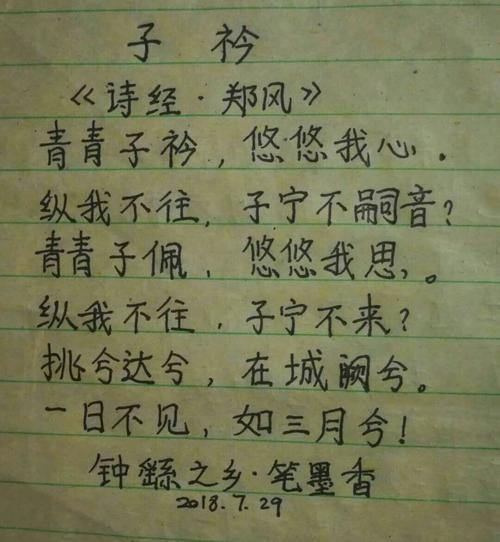 子衿
《诗经·郑风》
青青子衿，悠悠我心．
纵我不往，子宁不嗣音？
青青子佩，悠悠我思。
纵我不往，子宁不来？
挑兮达兮，在城阙兮。
一日不见，如三月兮！
钟繇之乡·笔墨香
2018.7.29